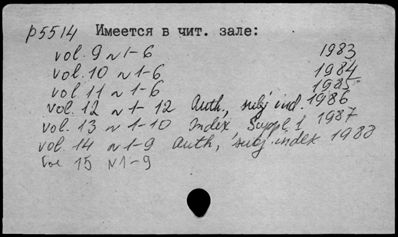 р5514 Имеется в чит. зале:
vol. 9 N 1-6 1983
vol. 10 N 1-6 1984
vol 11 N 1-6 1985
vol. 12 N 1-12 Auth., subj ind. 1986
vol. 13 N 1-10 Index, Suppl. 1 1987
vol. 14 N 1-9 auth, subj. index 1988
vol 15 N 1-9